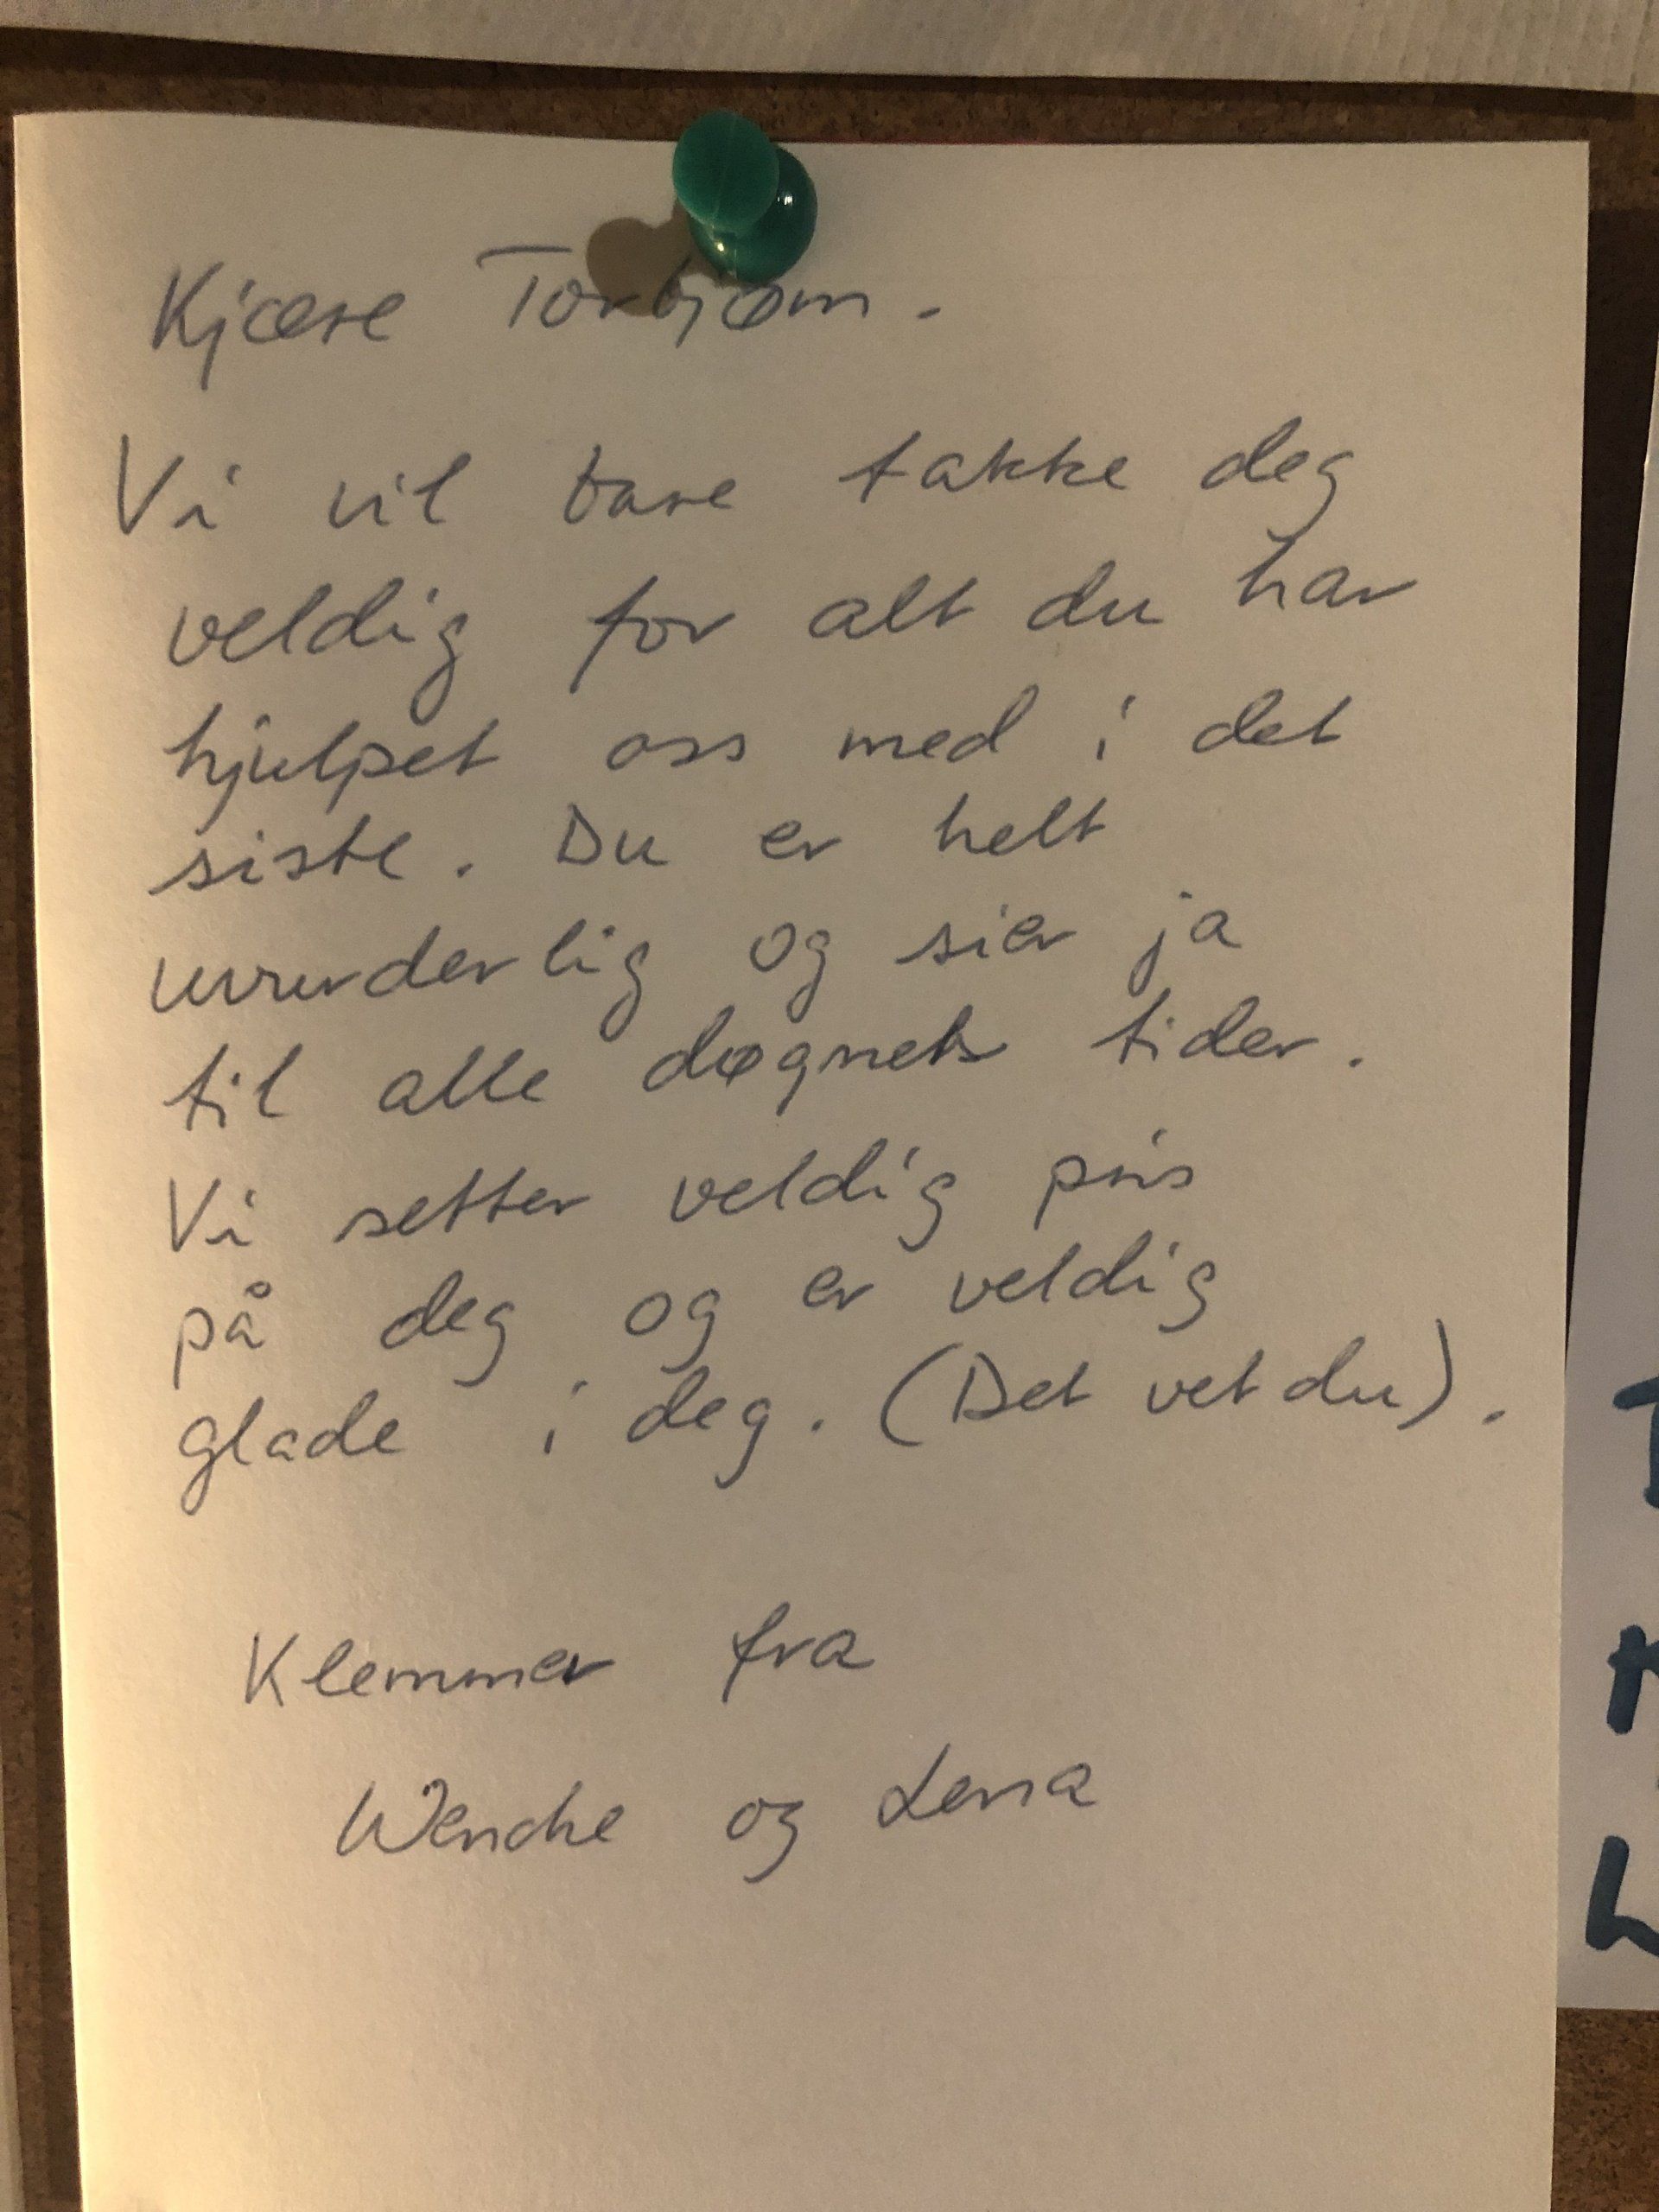 Kjære Torbjørn.
Vi vil bare takke deg
veldig for alt du har
hjulpet oss med i det
siste. Du er helt
vurderlig og sier ja
til alle døgnets tider.
Vi setter veldig pris
på deg og er veldig
glade i deg. (Det vet du).
Klemmer fra
Wenche og Lena